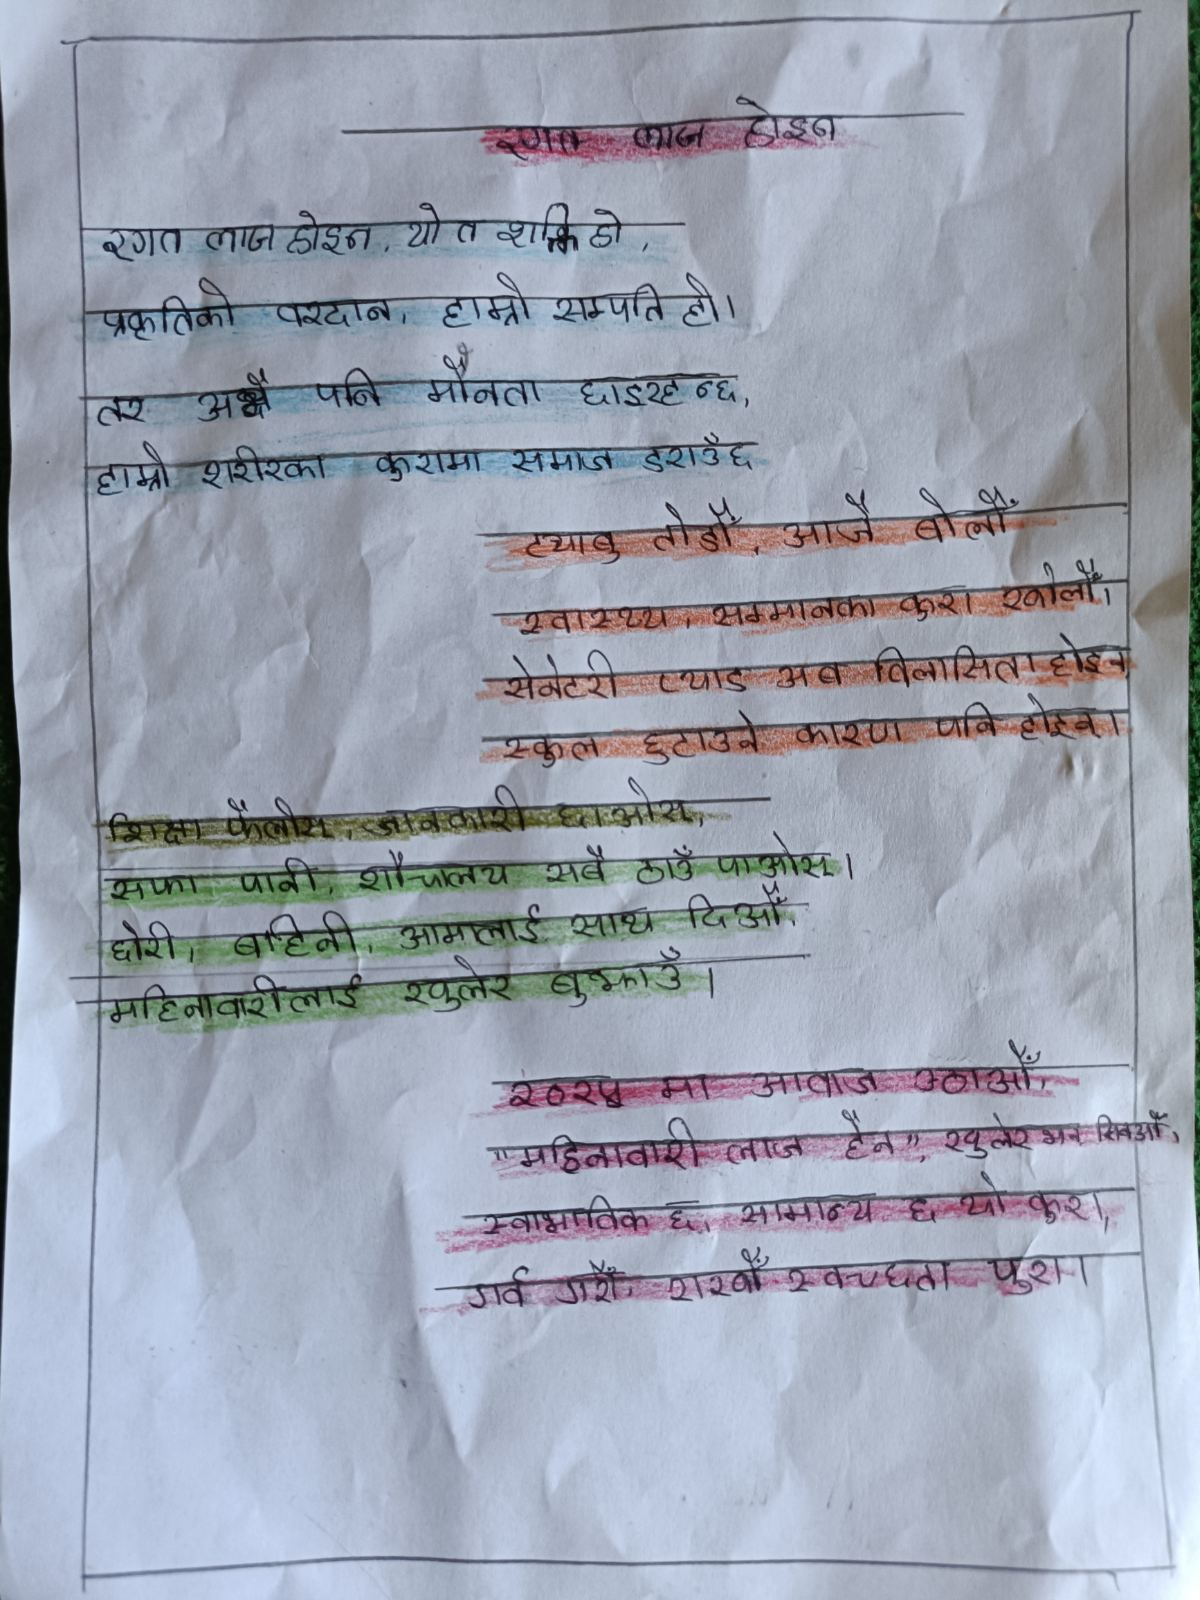 रगत लाज होइन
रगत लाज होइन, यो त शक्ति हो,
प्रकृतिको वरदान, हाम्रो सम्पति हो।
तर अझै पनि मौनता छाइरहन्छ,
हाम्रो शरीरका कुरामा समाज डराउँछ
ट्याबु तोडौँ, आजै बोलौँ
स्वास्थ्य, सम्मानका कुरा खोलौँ।
सेनेटरी प्याड अब विलासिता होइन
स्कुल छुटाउने कारण पनि होइन।
शिक्षा फैलोस, जानकारी छाओस,
सफा पानी, शौचालय सबै ठाउँ पाओस्।
छोरी, बहिनी, आमालाई साथ दिऔँ,
महिनावारीलाई खुलेर बुझाउँ।
२०२५ मा आवाज उठाऔँ,
"महिनावारी लाज हैन", खुलेर भन सिकऔँ,
स्वाभाविक छ, सामान्य छ यो कुरा,
गर्व गरौँ, राखौँ स्वच्छता पुरा।